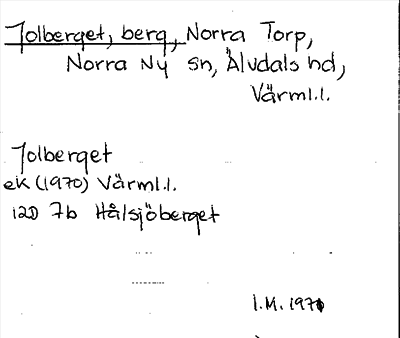 Jolberget, berg, Norra Torp,
Norra Ny sn, Älvdals hd,
Värml.l.
Jolberget
ek (1970) Värml.l.
12D 7b Hålsjöberget
I.M. 1971